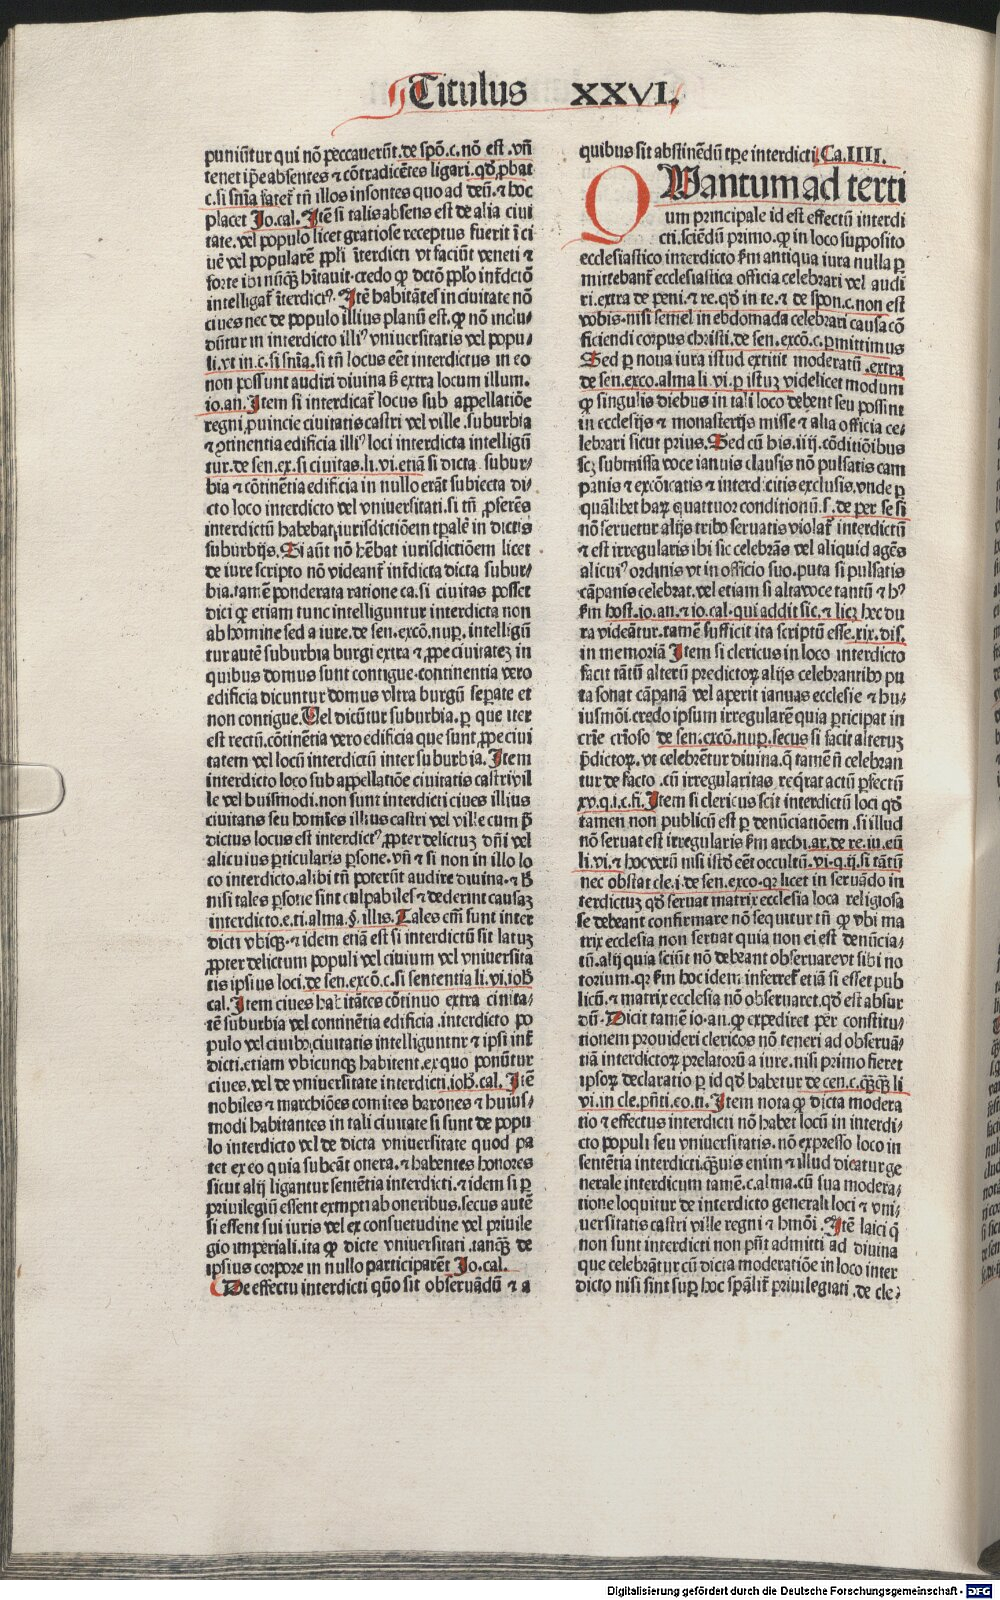 Titulus XXVI.
puniũtur qui nõ peccauerũt.de spõ.c.nõ est .vñ
tenet ip̃e absentes ⁊ cõtradicẽtes ligari.qđ ꝓbat
c.si sñia.fatet᷑ tñ illos insontes quo ad deũ.⁊ hoc
placet Jo.cal. Jtẽ si talis absens est de alia ciui
tate.vel populo licet gratiose receptus fuerit ĩ ci
uẽ vel popularẽ ppl̓i ĩterdicti vt faciũt veneti ⁊
forte ibi nũꝙ̃ hĩtauit.credo ꝙ dictõ ppl̓o intđictõ
intelligat᷑ ĩterdict⁹. Jtẽ habitãtes in ciuitate nõ
ciues nec de populo illius planũ est.ꝙ nõ inclu⸗
dũtur in interdicto illi⁹ vniuersitatis vel popu⸗
li.vt in.c.si sñia.si tñ locus eẽt interdictus in eo
non possunt audiri diuina s̃ extra locum illum.
io.an. Jtem si interdicat᷑ locus sub appellatiõe
regni ꝓuincie ciuitatis castri vel ville .suburbia
⁊ ꝯtinentia edificia illi⁹ loci interdicta intelligũ
tur.de sen.ex.si ciuitas.li.vi.etiã si dicta subur⸗
bia ⁊ cõtinẽtia edificia in nullo erãt subiecta di⸗
cto loco interdicto vel vniuersitati.si tñ ꝓferẽs
interdictũ habebat iurisdictiõem tp̃alẽ in dictis
suburbijs. Si aũt nõ hẽbat iurisdictiõem licet
de iure scripto nõ videant᷑ int̃dicta dicta subur⸗
bia.tamẽ ponderata ratione ca.si ciuitas posset
dici ꝙ etiam tunc intelliguntur interdicta non
ab homine sed a iure.de sen.excõ.nup̱. intelligũ
tur autẽ suburbia burgi extra ⁊ ꝓpe ciuitateꝫ in
quibus domus sunt contigue.continentia vero
edificia dicuntur domus vltra burgũ sep̱ate et
non contigue. Uel dicũtur suburbia.p̱ que iter
est rectũ.cõtinẽtia vero edificia que sunt ꝓpe ciui
tatem vel locũ interdictũ inter suburbia. Jtem
interdicto loco sub appellatiõe ciuitatis castri vil
le vel huiusmodi.non sunt interdicti ciues illius
ciuitatis seu homĩes illius castri vel ville cum p̃
dictus locus est interdict⁹ ꝓpter delictuꝫ dñi vel
alicuius p̱ticularis p̱sone.vñ ⁊ si non in illo lo
co interdicto.alibi tñ poterũt audire diuina.⁊ ħ
nisi tales p̱sone sint culpabiles ⁊ dederint causaꝫ
interdicto.e.ti.alma.§.illis. Tales em̃ sunt inter
dicti vbiqꝫ.⁊ idem etiã est si interdictũ sit latuꝫ
ꝓpter delictum populi vel ciuium vel vniuersita
tis ipsius loci.de sen.excõ.c.si sententia li.vi.ioh̃
cal. Jtem ciues habitãtes cõtinuo extra ciuita⸗
tẽ suburbia vel continẽtia edificia .interdicto po
pulo vel ciuibꝰ ciuitatis intelliguntur ⁊ ipsi int᷑
dicti.etiam vbicunqꝫ habitent.ex quo ponũtur
ciues.vel de vniuersitate interdicti.ioh̃.cal. Jtẽ
nobiles ⁊ marchiões comites barones ⁊ huius⸗
modi habitantes in tali ciuitate si sunt de popu
lo interdicto vel de dicta vniuersitate quod pa
tet ex eo quia subeãt onera.⁊ habentes honores
sicut alij ligantur sentẽtia interdicti.⁊ idem si p̱
priuilegiũ essent exmpti ab oneribus.secus autẽ
si essent sui iuris vel ex consuetudine vel priuile
gio imperiali.ita ꝙ dicte vniuersitati .tanꝙ̃ de
ipsius corpore in nullo participarẽt Jo.cal.
De effectu interdicti quõ sit obseruãdũ ⁊ a
quibus sit abstinẽdũ tp̱e interdicti Ca.IIII.
QUantum ad terti
um principale id est effectũ interdi
cti.sciẽdũ primo.ꝙ in loco supposito
ecclesiastico interdicto fm antiqua iura nulla p̱
mittebant᷑ ecclesiastica officia celebrari vel audi
ri.extra de peni.⁊ re.qđ in te.⁊ de spon.c.non est
vobis.nisi semel in ebdomada celebrari causa cõ
ficiendi corpus christi.de sen.excõ.c.p̱mittimus
Sed p̱ noua iura istud extitit moderatũ .extra
de sen.exco.alma li.vi.p̱ istuꝫ videlicet modum
ꝙ singulis diebus in tali loco debent seu possint
in ecclesijs ⁊ monasterijs misse ⁊ alia officia ce⸗
lebrari sicut prius. Sed cũ his.iiij.cõditiõibus
scꝫ submissa voce ianuis clausis nõ pulsatis cam
panis ⁊ excõicatis ⁊ interdicitis exclusis.vnde p̱
quãlibet haꝝ quattuor conditionũ.s.de per se si
nõ seruetur alijs tribꝰ seruatis violat᷑ interdictũ
⁊ est irregularis ibi sic celebrãs vel aliquid agẽs
alicui⁹ ordinis vt in officio suo.puta si pulsatis
cãpanis celebrat.vel etiam si alta voce tantũ ⁊ h⁹
fm host.io.an.⁊ io.cal.qui addit sic.⁊ licꝫ hec du
ra videãtur.tamẽ sufficit ita scriptũ esse.xix.dis.
in memoriã Jtem si clericus in loco interdicto
facit tãtũ alterũ predictoꝝ alijs celebrantibꝰ pu
ta sonat cãpanã vel aperit ianuas ecclesie ⁊ hu⸗
iusmõi.credo ipsum irregularẽ quia p̱ticipat in
crĩe crĩoso de sen.excõ.nup̱.secus si facit alteruꝫ
p̃dictoꝝ.vt celebrẽtur diuina.q̃ tamẽ ñ celebran
tur de facto .cũ irregularitas req̃rat actũ p̱fectũ
xv.q.i.c.fi. Jtem si clericus scit interdictũ loci qđ
tamen non publicũ est p̱ denũciatiõem .si illud
nõ seruat est irregularis fm archi.ar.de re.iu.eũ
li.vi.⁊ hoc verũ nisi istđ eẽt occultũ.vi.q.ij.si tãtũ
nec obstat cle.i.de sen.exco.qꝛ licet in seruãdo in
terdictuꝫ qđ seruat matrix ecclesia loca religiosa
se debeant confirmare nõ sequitur tñ ꝙ vbi ma
trix ecclesia non seruat quia non ei est denũcia⸗
tũ.alij quia sciũt nõ debeant obseruare vt sibi no
torium.qꝛ fm hoc idem inferret᷑ etiã si esset pub
licũ.⁊ matrix ecclesia nõ obseruaret.qđ est absur
dũ. Dicit tamẽ io.an.ꝙ expediret per constitu⸗
tionem prouideri clericos nõ teneri ad obseruã⸗
tiã interdictoꝝ prelatorũ a iure.nisi primo fieret
ipsoꝝ declaratio p̱ id qđ habetur de cen.c.ꝙ̃ꝙ̃ li
vi.in cle.p̃nti.eo.ti. Jtem nota ꝙ dicta modera
tio ⁊ effectus interdicti nõ habet locũ in interdi⸗
cto populi seu vniuersitatis.nõ expresso loco in
sentẽtia interdicti.ꝙ̃uis enim ⁊ illud dicatur ge
nerale interdicum tamẽ.c.alma.cũ sua modera⸗
tione loquitur de interdicto generali loci ⁊ vni⸗
uersitatis castri ville regni ⁊ hmõi . Jtẽ laici q̃
non sunt interdicti non p̃nt admitti ad diuina
que celebrãtur cũ dicta moderatiõe in loco inter
dicto nisi sint sup̱ hoc sp̃alit᷑ priuilegiati .de cle⸗
Digitalisierung gefördert durch die Deutsche Forschungsgemeinschaft - DFG